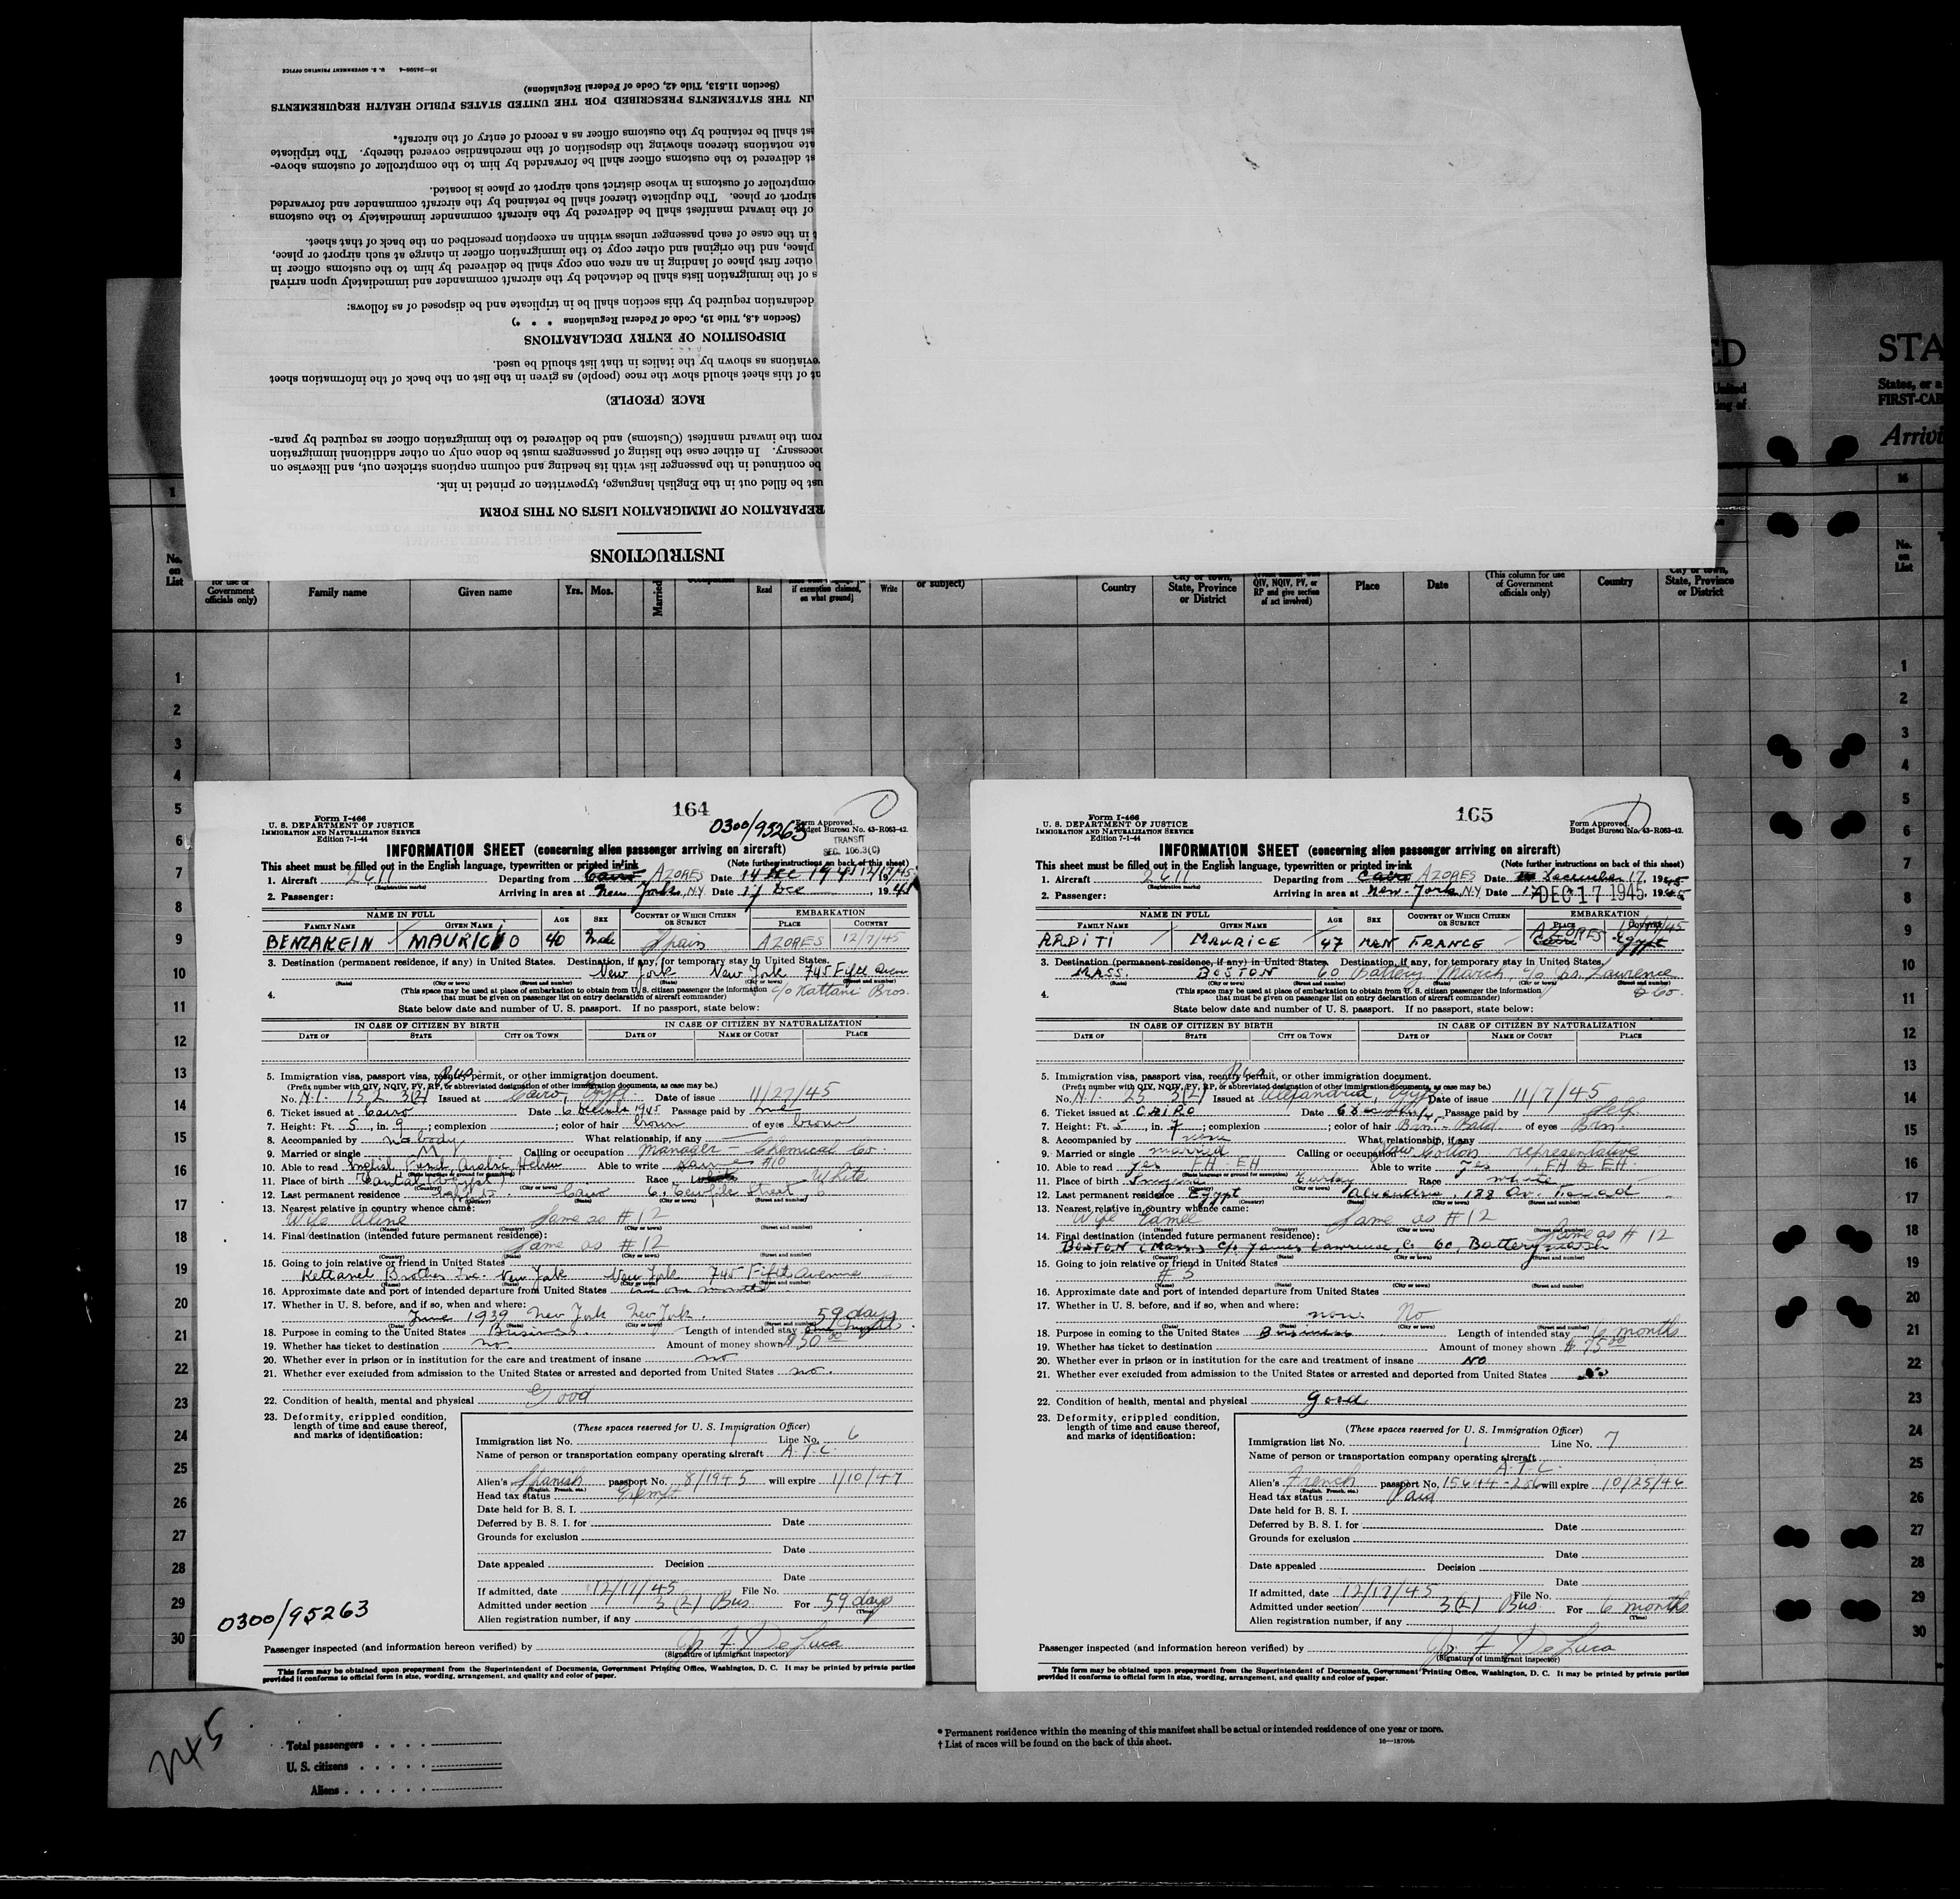 16—24596-4 U. S. GOVERNMENT PRINTING OFFICE
(Section 11.513, Title 42, Code of Federal Regulations)
IN THE STATEMENTS PRESCRIBED FOR THE UNITED STATES PUBLIC HEALTH REQUIREMENTS
shall be retained by the customs officer as a record of entry of the aircraft.
notations thereon showing the disposition of the merchandise covered thereby. The triplicate
delivered to the customs officer shall be forwarded by him to the comptroller of customs above-
comptroller of customs in whose district such airport or place is located.
airport or place. The duplicate thereof shall be retained by the aircraft commander and forwarded
of the inward manifest shall be delivered by the aircraft commander immediately to the customs
in the case of each passenger unless within an exception prescribed on the back of that sheet.
place, and the original and other copy to the immigration officer in charge at such airport or place,
other first place of landing in an area one copy shall be delivered by him to the customs officer in
of the immigration lists shall be detached by the aircraft commander and immediately upon arrival
declaration required by this section shall be in triplicate and be disposed of as follows:
(Section 4.8, Title 19, Code of Federal Regulations * * *)
DISPOSITION OF ENTRY DECLARATIONS
as shown by the italics in that list should be used.
of this sheet should show the race (people) as given in the list on the back of the information sheet
RACE (PEOPLE)
from the inward manifest (Customs) and be delivered to the immigration officer as required by para-
necessary. In either case the listing of passengers must be done only on other additional immigration
be continued in the passenger list with its heading and column captions stricken out, and likewise on
be filled out in the English language, typewritten or printed in ink.
OF IMMIGRATION LISTS ON THIS FORM
INSTRUCTIONS
ED STA
United States, or a
FIRST-CAB
Arrivi
No. on List
Government officials only) Family name Given name Yrs. Mos. Married Read if exemption claimed, on what ground) Write or subject) Country City or town, State, Province or District QIV, NQIV, PV, or RP and give section of act involved) Place Date (This column for use of Government officials only) Country City or town, State, Province or District No. on List
164
0300/95263
Form I-466
U. S. DEPARTMENT OF JUSTICE
IMMIGRATION AND NATURALIZATION SERVICE
Edition 7-1-44
Form Approved.
Budget Bureau No. 43-R063-42.
TRANSIT
SEC. 106.3(C)
INFORMATION SHEET (concerning alien passenger arriving on aircraft)
This sheet must be filled out in the English language, typewritten or printed in ink (Note further instructions on back of this sheet)
1. Aircraft 2611 Departing from Cairo AZORES Date 14 Dec 12/17/45
(Registration marks)
2. Passenger: Arriving in area at New York, N.Y. Date 17 Dec 1945
NAME IN FULL AGE SEX COUNTRY OF WHICH CITIZEN OR SUBJECT EMBARKATION
FAMILY NAME GIVEN NAME PLACE COUNTRY
BENZAKEIN MAURICIO 40 Male Spain AZORES 12/7/45
3. Destination (permanent residence, if any) in United States. Destination, if any, for temporary stay in United States.
New York New York 745 Fifth Aven
(State) (City or town) (Street and number) (State) (City or town) (Street and number)
c/o Kattani Bros.
4. (This space may be used at place of embarkation to obtain from U. S. citizen passenger the information
that must be given on passenger list on entry declaration of aircraft commander)
State below date and number of U. S. passport. If no passport, state below:
IN CASE OF CITIZEN BY BIRTH IN CASE OF CITIZEN BY NATURALIZATION
DATE OF STATE CITY OR TOWN DATE OF NAME OF COURT PLACE
5. Immigration visa, passport visa, reentry permit, or other immigration document. Bus
(Prefix number with QIV, NQIV, PV, RP, or abbreviated designation of other immigration documents, as case may be.)
No. N.I. 152 3(2) Issued at Cairo, Egypt. Date of issue 11/27/45
6. Ticket issued at Cairo Date 6 December 1945 Passage paid by me
7. Height: Ft. 5, in. 9; complexion ; color of hair brown of eyes brown
8. Accompanied by nobody What relationship, if any
9. Married or single M Calling or occupation Manager - Chemical Co.
10. Able to read English, French, Arabic Hebrew Able to write same #10
11. Place of birth Tantah (Egypt) Race White White
12. Last permanent residence Egypt Cairo 6, Tewfik Street
13. Nearest relative in country whence came:
Wife Aline Same as #12
(Name) (Country) (City or town) (Street and number)
14. Final destination (intended future permanent residence):
Same as #12
(Country) (State) (City or town) (Street and number)
15. Going to join relative or friend in United States
Kettanel Brothers Inc. New York New York 745 Fifth Avenue
(Name) (State) (City or town) (Street and number)
16. Approximate date and port of intended departure from United States in one month
17. Whether in U. S. before, and if so, when and where:
June 1939 New York New York.
(Date) (State) (City or town) (Street and number)
59 days
18. Purpose in coming to the United States Business. Length of intended stay one month
19. Whether has ticket to destination no. Amount of money shown $50.00
20. Whether ever in prison or in institution for the care and treatment of insane no
21. Whether ever excluded from admission to the United States or arrested and deported from United States no.
22. Condition of health, mental and physical Good
23. Deformity, crippled condition, length of time and cause thereof, and marks of identification:
(These spaces reserved for U. S. Immigration Officer)
Immigration list No. 1 Line No. 6
Name of person or transportation company operating aircraft A.T.C.
Alien's Spanish passport No. 8/1945 will expire 1/10/47
(English, French, etc.)
Head tax status Exempt
Date held for B. S. I.
Deferred by B. S. I. for Date
Grounds for exclusion
Date
Date appealed Decision
Date
If admitted, date 12/17/45 File No.
Admitted under section 3(2) Bus. For 59 days
(Time)
Alien registration number, if any
0300/95263
Passenger inspected (and information hereon verified) by Jr. F. De Luca
(Signature of immigrant inspector)
This form may be obtained upon prepayment from the Superintendent of Documents, Government Printing Office, Washington, D. C. It may be printed by private parties
provided it conforms to official form in size, wording, arrangement, and quality and color of paper.
165
Form I-466
U. S. DEPARTMENT OF JUSTICE
IMMIGRATION AND NATURALIZATION SERVICE
Edition 7-1-44
Form Approved.
Budget Bureau No. 43-R063-42.
INFORMATION SHEET (concerning alien passenger arriving on aircraft)
This sheet must be filled out in the English language, typewritten or printed in ink (Note further instructions on back of this sheet)
1. Aircraft 2611 Departing from Cairo AZORES Date December 17, 1945
(Registration marks)
2. Passenger: Arriving in area at New-York, N.Y. Date 17 DEC 17 1945 1945
NAME IN FULL AGE SEX COUNTRY OF WHICH CITIZEN OR SUBJECT EMBARKATION
FAMILY NAME GIVEN NAME PLACE COUNTRY
ARDITI MAURICE 47 MAN FRANCE AZORES Cairo Egypt
3. Destination (permanent residence, if any) in United States. Destination, if any, for temporary stay in United States.
MASS. BOSTON 60 Battery March, c/o Js. Lawrence & Co.
(State) (City or town) (Street and number) (State) (City or town) (Street and number)
4. (This space may be used at place of embarkation to obtain from U. S. citizen passenger the information
that must be given on passenger list on entry declaration of aircraft commander)
State below date and number of U. S. passport. If no passport, state below:
IN CASE OF CITIZEN BY BIRTH IN CASE OF CITIZEN BY NATURALIZATION
DATE OF STATE CITY OR TOWN DATE OF NAME OF COURT PLACE
5. Immigration visa, passport visa, reentry permit, or other immigration document. Bus
(Prefix number with QIV, NQIV, PV, RP, or abbreviated designation of other immigration documents, as case may be.)
No. N.I. 25 3(2) Issued at Alexandria, Egypt Date of issue 11/7/45
6. Ticket issued at CAIRO Date 6 December Passage paid by Self.
7. Height: Ft. 5, in. 7; complexion ; color of hair Brn. - Bald. of eyes Brn.
8. Accompanied by none What relationship, if any
9. Married or single married Calling or occupation Raw Cotton representative
10. Able to read yes FH - EH Able to write yes FH & EH.
11. Place of birth Smyrna Turkey Race white
12. Last permanent residence Egypt Alexandria, 188 Av. Fouad
13. Nearest relative in country whence came:
Wife Same as #12
(Name) (Country) (City or town) (Street and number)
14. Final destination (intended future permanent residence): Same as #12
BOSTON (Mass.) c/o James Lawrence, Co 60, Battery march
(Country) (State) (City or town) (Street and number)
15. Going to join relative or friend in United States
# 3
(Name) (State) (City or town) (Street and number)
16. Approximate date and port of intended departure from United States
17. Whether in U. S. before, and if so, when and where:
none No
(Date) (State) (City or town) (Street and number)
18. Purpose in coming to the United States Business Length of intended stay 6 months
19. Whether has ticket to destination Amount of money shown $ 75.00
20. Whether ever in prison or in institution for the care and treatment of insane NO
21. Whether ever excluded from admission to the United States or arrested and deported from United States
22. Condition of health, mental and physical good
23. Deformity, crippled condition, length of time and cause thereof, and marks of identification:
(These spaces reserved for U. S. Immigration Officer)
Immigration list No. 1 Line No. 7
Name of person or transportation company operating aircraft
A.T.C.
Alien's French passport No. will expire 10/25/46
(English, French, etc.)
Head tax status Paid
Date held for B. S. I.
Deferred by B. S. I. for Date
Grounds for exclusion
Date
Date appealed Decision
Date
If admitted, date 12/17/45 File No.
Admitted under section 3(2) Bus. For 6 months
(Time)
Alien registration number, if any
Passenger inspected (and information hereon verified) by Jr. F. De Luca
(Signature of immigrant inspector)
This form may be obtained upon prepayment from the Superintendent of Documents, Government Printing Office, Washington, D. C. It may be printed by private parties
provided it conforms to official form in size, wording, arrangement, and quality and color of paper.
Total passengers
U. S. citizens
Aliens
* Permanent residence within the meaning of this manifest shall be actual or intended residence of one year or more.
† List of races will be found on the back of this sheet. 16—18709b